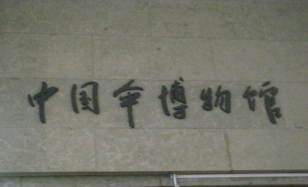 中国伞博物馆